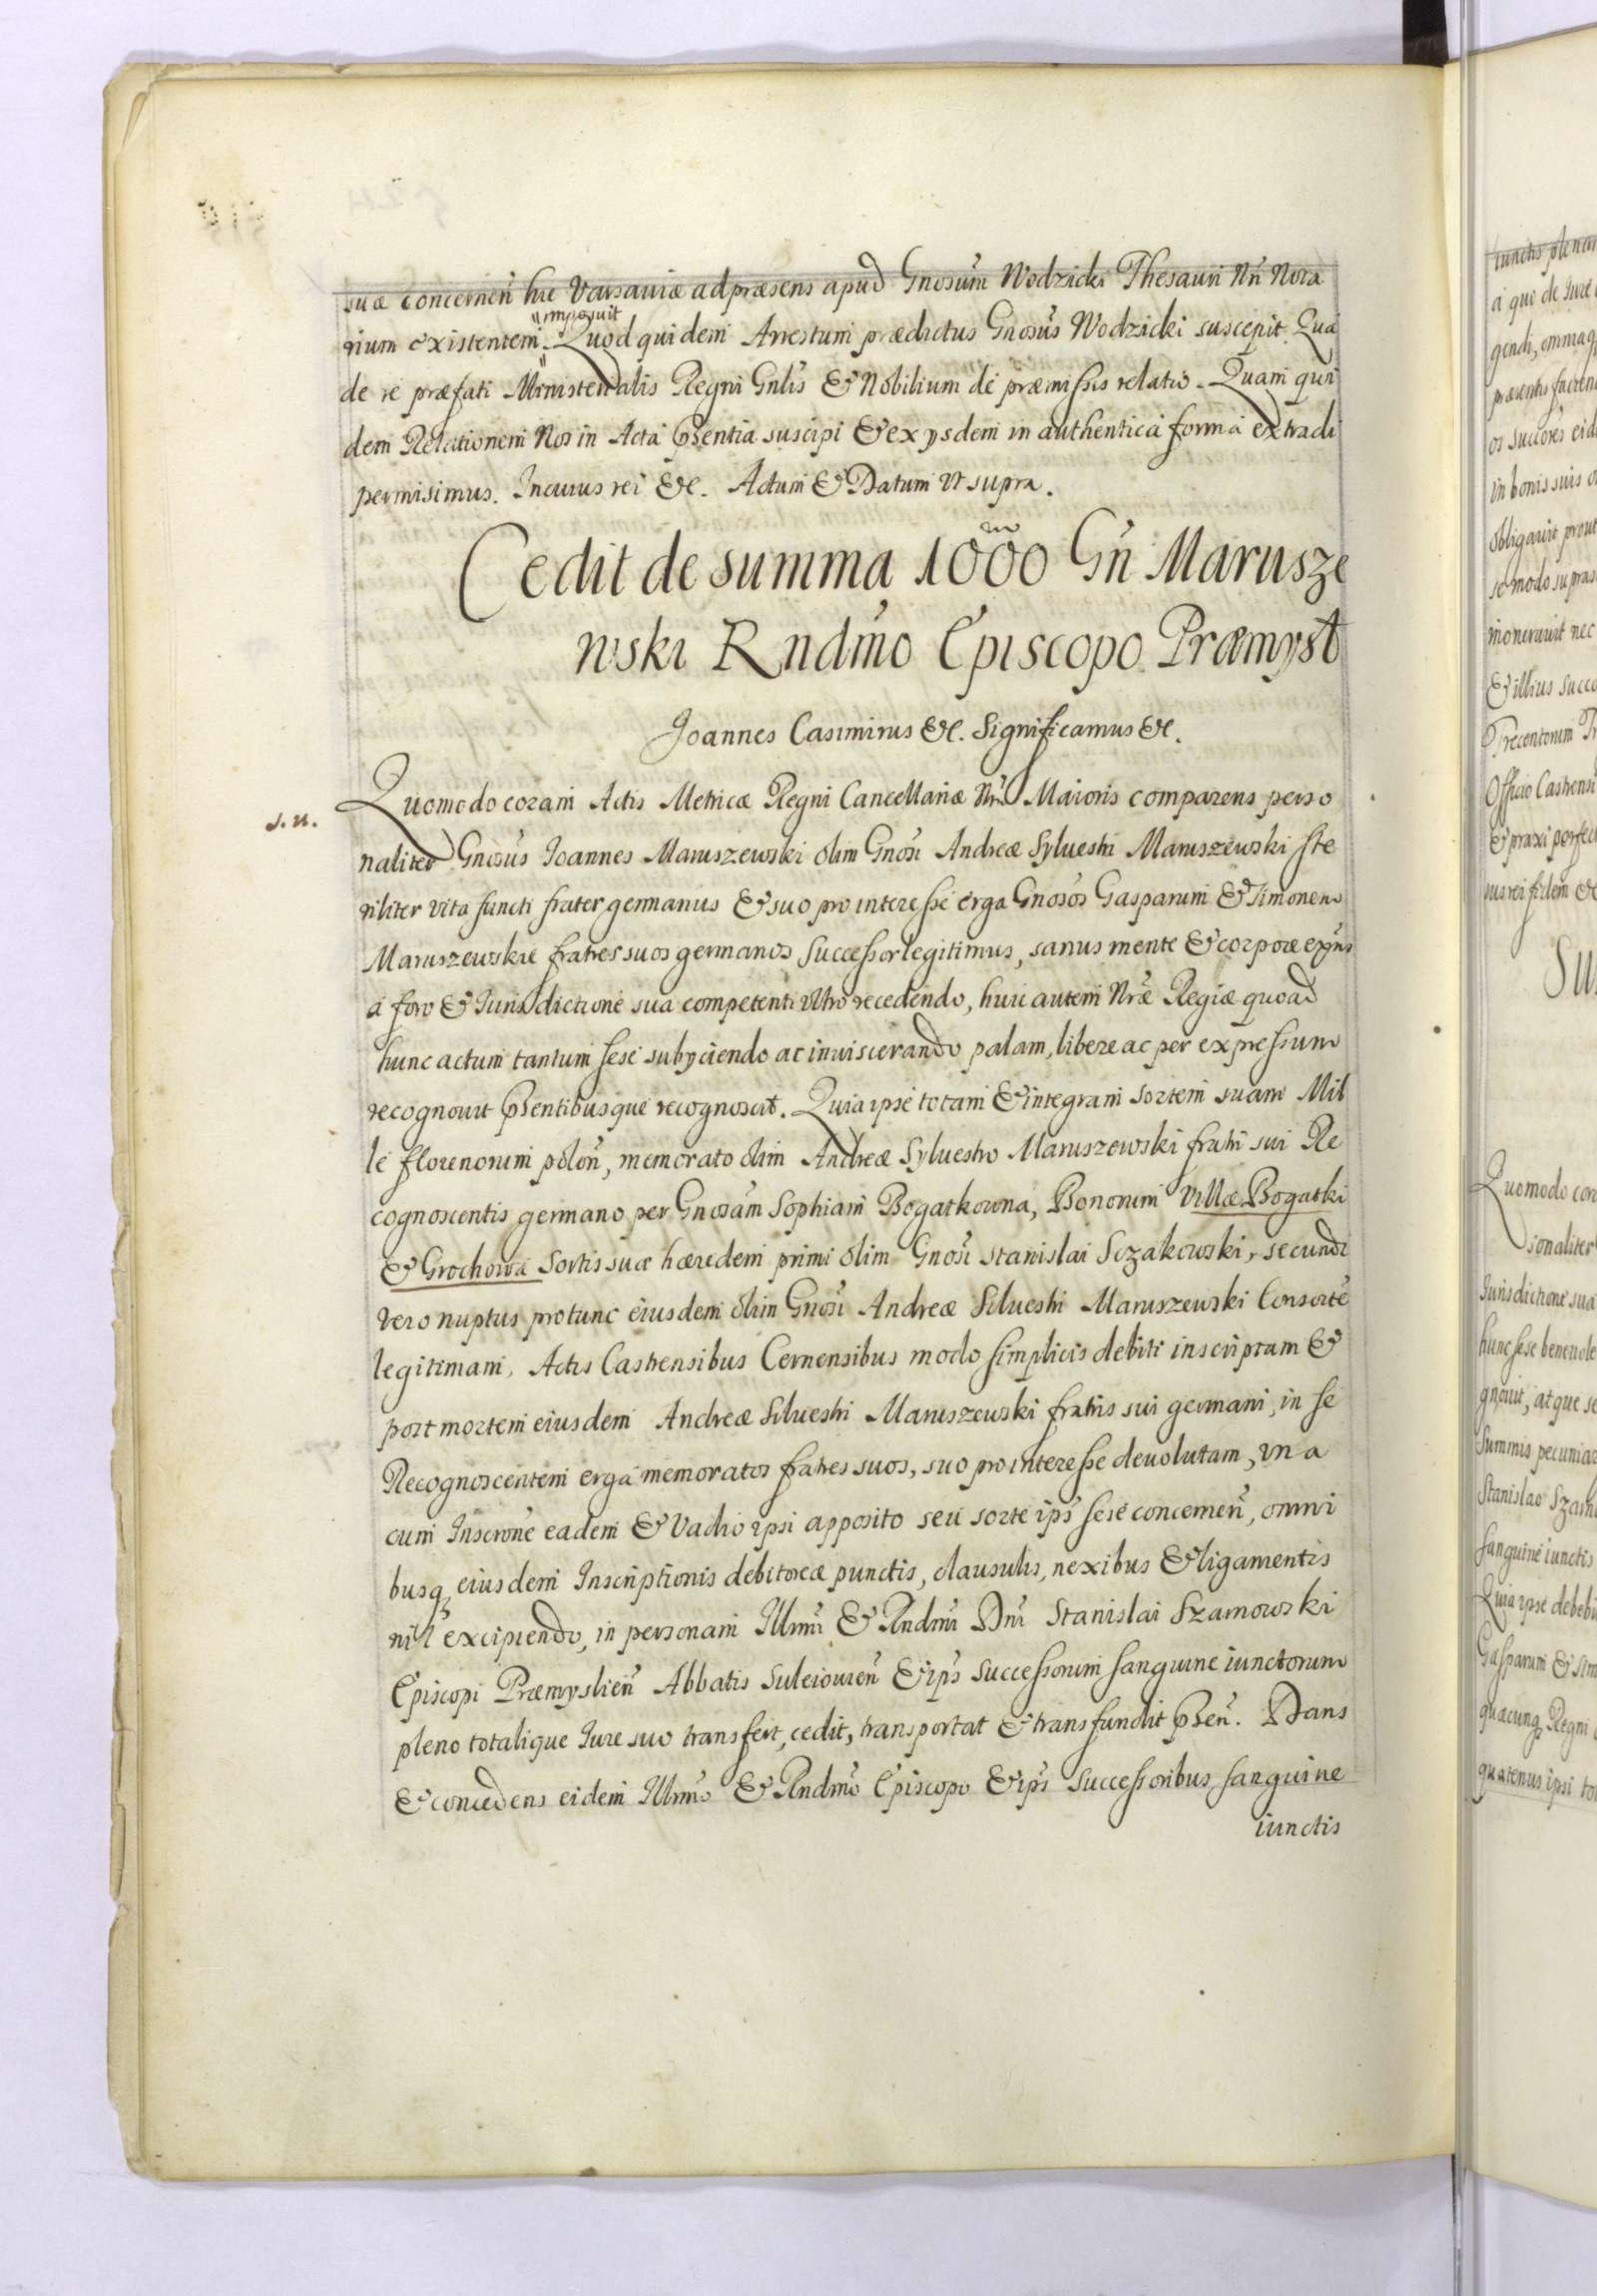 suæ concerneñ hic Varsaviæ ad præsens apud Gnosum̃ Wodzicki Thesauri Nri Nota
rium existentem imposuit. Quod quidem Arrestum prædictus Gnosus̃ Wodzicki suscepit. Qua
de re præfati Ministerialis Regni Gnlis̃ & Nobilium de præmissis relatio. Quam qui
dem Relationem Nos in Acta pñsentia suscipi & ex ysdem in authentica forma extradi
permisimus. In cuius rei &c. Actum & Datum vt supra.
Cedit de summa 1000 Gñ Marusze
wski Rndm̃o Episcopo Præmysł
Joannes Casimirus &c. Significamus &c.
Quomodo coram Actis Metricæ Regni Cancellariæ Nræ̃ Maioris comparens perso
s. n.
naliter Gnosus̃ Ioannes Maruszewski olim Gnosi̇̃ Andreæ Sylvestri Maruszewski ste
riliter vita functi frater germanus & suo pro interesse erga Gnosos̃ Gasparum & Simonem
Maruszewskie fratres suos germanos Successor legitimus, sanus mente & corpore exñs
a foro & Jurisdictione sua competenti vltro recedendo, huic autem Nræ̃ Regiæ quoad
hunc actum tantum sese subyciendo ac inviscerando palam, libere ac per expressum
recognovit pñsentibusque recognoscit. Quia ipse totam & integram sortem suam Mil
le florenorum polon̄, memorato olim Andreæ Sylvestro Maruszewski fratri sui Re
cognoscentis germano per Gnosam̃ Sophiam Bogatkowna, Bonorum Villæ Bogatki
& Grochowa Sortis suæ hæredem primi olim Gnosi̇̃ Stanislai Sczakowski, secundi
vero nuptus protunc eiusdem olim Gnosi̇̃ Andreæ Silvestri Maruszewski Consorte̅
legitimam, Actis Castrensibus Cernensibus modo simplicis debiti inscriptam &
post mortem eiusdem Andreæ Silvestri Maruszewski fratris sui germani, in se
Recognoscentem erga memoratos fratres suos, suo pro interesse devolutam, vna
cum Inscrõne eadem & Vadio ipsi apposito seu sorte ips̃ sese concerneñ, omni
busq; eiusdem Inscriptionis debitoreæ punctis, clausulis, nexibus & ligamentis
nil̃ excipiendo, in personam Illmi̇̃ & Rndmi̇̃ Dni̇̃ Stanislai Szarnowski
Episcopi Præmyslieñ Abbatis Suleiovieñ & ips̃ successorum sanguine iunctorum
pleno totalique Iure suo transfert, cedit, transportat & transfundit pñseñ. Dans
& concedens eidem Illmo̊̃ & Rndmo̊̃ Episcopo & ips̃ successoribus sanguine
iunctis